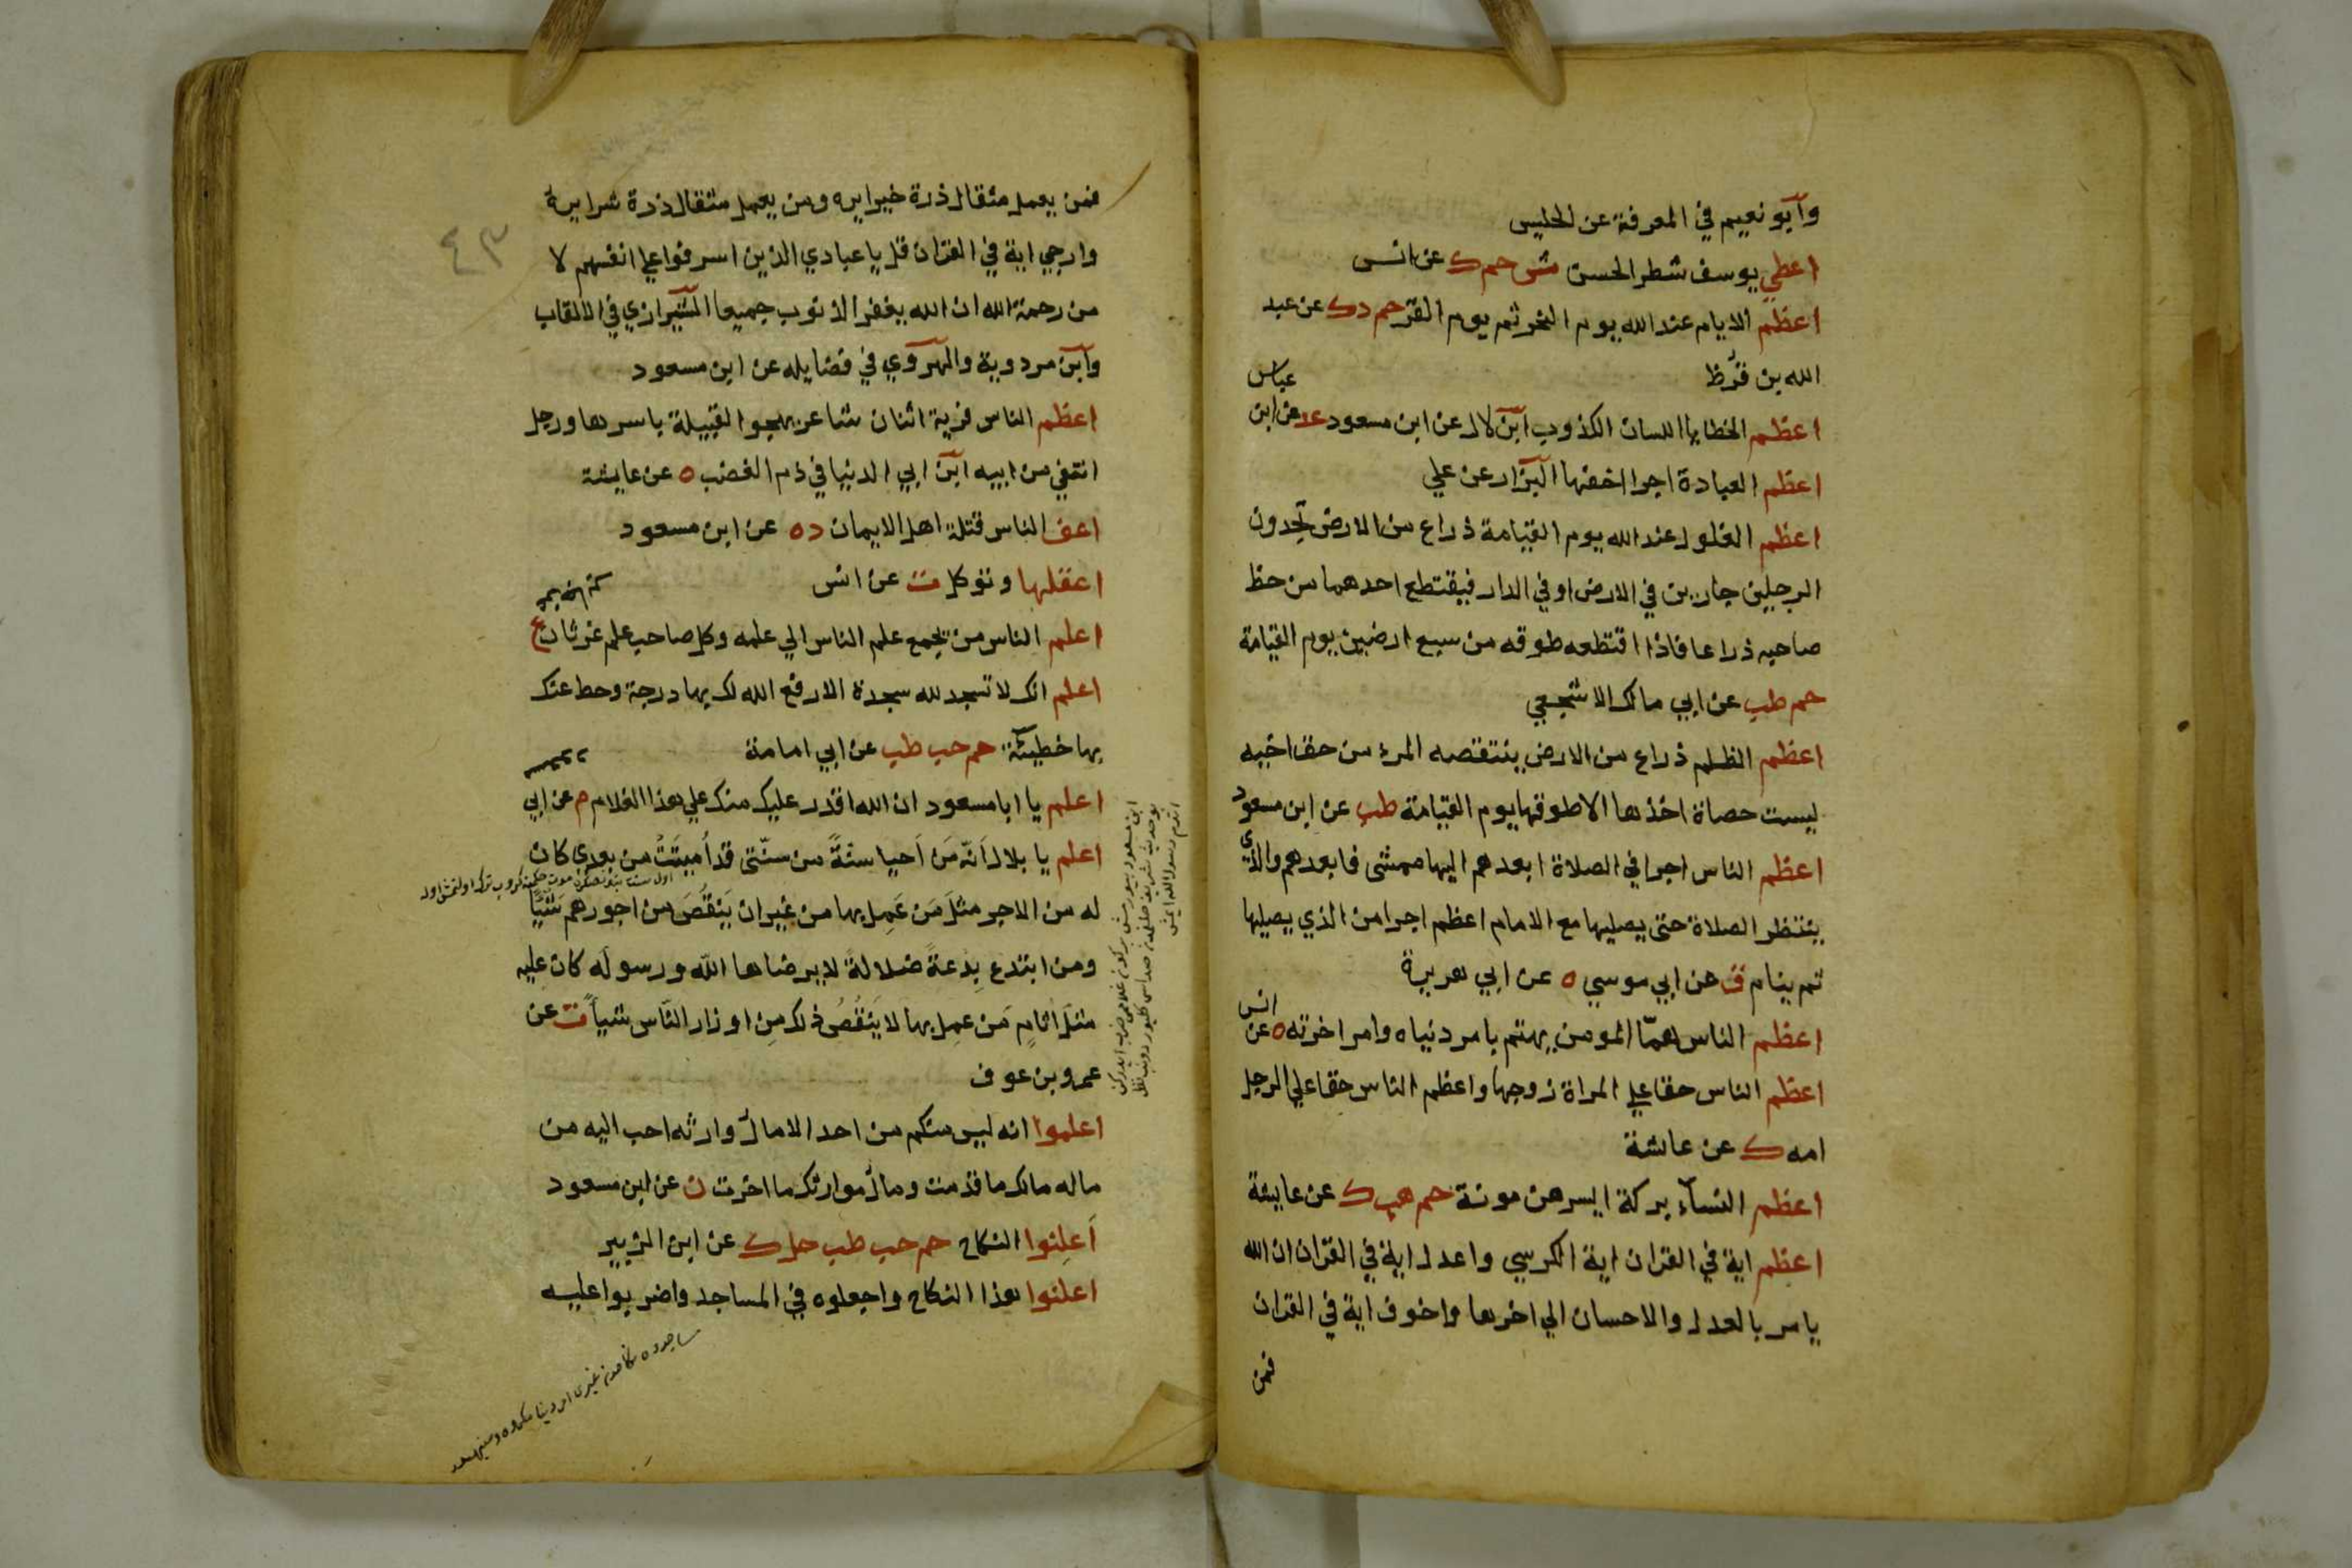 وابو نعيم في المعرفة عن الحليس
اعطي يوسف شطر الحسن ش حم ك عن انس
اعظم الايام عند الله يوم النحر ثم يوم القر حم د ك عن عبد
الله بن قرط
اعظم الخطايا اللسان الكذوب ابن لال عن ابن مسعود عد عن ابن
عباس
اعظم العيادة اجرا اخفها البزار عن علي
اعظم الغلول عند الله يوم القيامة ذراع من الارض تجدون
الرجلين جارين في الارض او في الدار فيقتطع احدهما من حظ
صاحبه ذراعا فاذا اقتطعه طوقه من سبع ارضين يوم القيامة
حم طب عن ابي مالك الاشجعي
اعظم الظلم ذراع من الارض ينتقصه المرء من حق اخيه
ليست حصاة اخذها الا طوقها يوم القيامة طب عن ابن مسعود
اعظم الناس اجرا في الصلاة ابعدهم اليها ممشى فابعدهم والذي
ينتظر الصلاة حتى يصليها مع الامام اعظم اجرا من الذي يصليها
ثم ينام ق عن ابي موسي ه عن ابي هريرة
اعظم الناس همّا المومن يهتم بامر دنياه وامر اخرته ه عن
انس
اعظم الناس حقا علي المراة زوجها واعظم الناس حقا علي الرجل
امه ك عن عائشة
اعظم النسآء بركة ايسرهن مونة حم هب ك عن عايشة
اعظم اية في القران اية الكرسي واعدل اية في القران ان الله
يامر بالعدل والاحسان الي اخرها واخوف اية في القران
فمن
٤٣
فمن يعمل مثقال ذرة خيرا يره ومن يعمل مثقال ذرة شرا يره
وارجي اية في القران قل يا عبادي الذين اسرفوا علي انفسهم لا
من رحمة الله ان الله يغفر الذنوب جميعا الشيرازي في الالقاب
وابن مردوية والهروي في فضايله عن ابن مسعود
اعظم الناس فرية اثنان شاعر يهجوا القبيلة باسرها ورجل
انتفي من ابيه ابن ابي الدنيا في ذم الغضب ه عن عايشة
اعف الناس قتلة اهل الايمان د ه عن ابن مسعود
اعقلها وتوكل ت عن انس
اعلم الناس من يجمع علم الناس الي علمه وكل صاحب علم غرثان ع
اعلم انك لا تسجد لله سجدة الا رفع الله لك بها درجة وحط عنك
بها خطيئة حم حب طب عن ابي امامة
اعلم يا ابا مسعود ان الله اقدر عليك منك علي هذا الغلام م عن ابي
اعلم يا بلال اَنّه مَن اَحيا سنّةً من سنّتى قد اُميتَتْ من بعدي كان
له من الاجر مثلَ مَن عَمِل بها من غير ان يَنقُصَ من اجورهم شَيْئًا
ومن ابتدع بِدعةً ضلالةً لا يرضاها اللّه ورسولَه كان عليه
مثلَ اثامِ مَن عمِل بها لا يَنْقُصُ ذلك مِن اوزار النّاس شيأً ت عن
عمرو بن عوف
اعلموا انه ليس منكم من احد الا مال وارثه احب اليه من
ماله مالك ما قدمت ومال موارثك ما اخرت ن عن ابن مسعود
اَعلِنوا النكاح حم حب طب حل ك عن ابن الزبير
اعلنوا هذا النكاح واجعلوه في المساجد واضربوا عليه